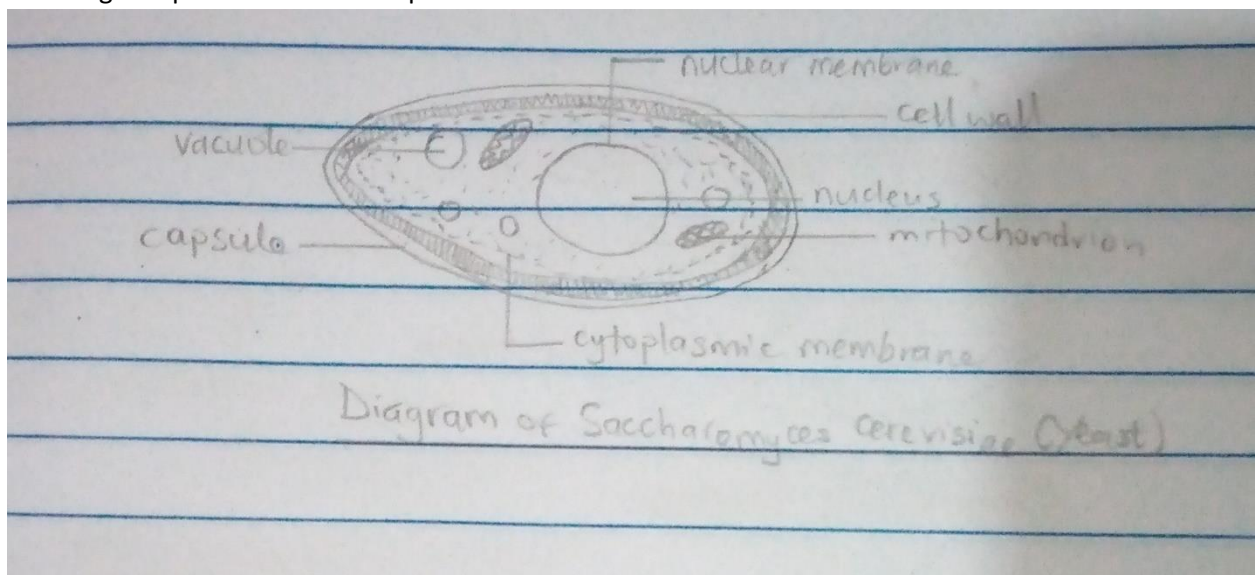 nuclear membrane
cell wall
vacuole
nucleus
capsule
mitochondrion
cytoplasmic membrane
Diagram of Saccharomyces cerevisiae (Yeast)